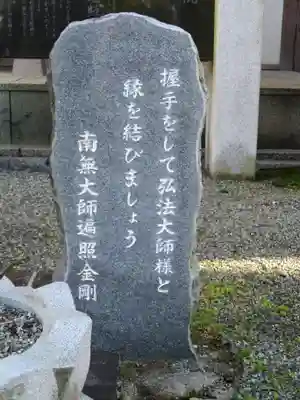 握手をして弘法大師様と
縁を結びましょう
南無大師遍照金剛